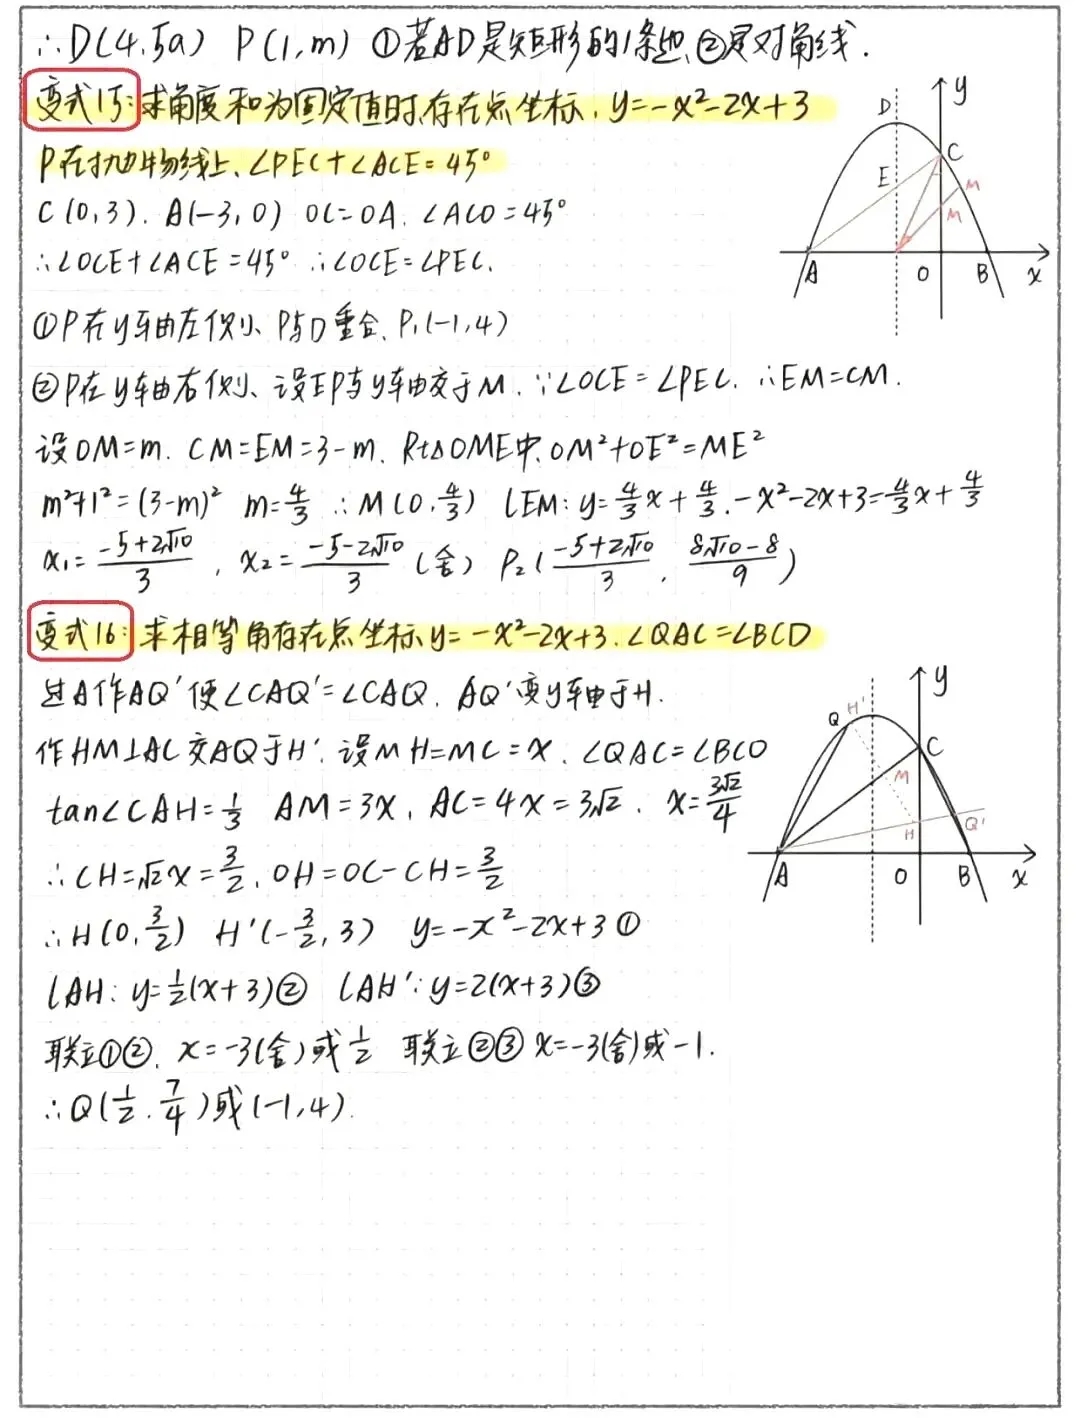 ∴D(4,5a) P(1,m) ①若AD是矩形的1条边、②是对角线.
变式15:求角度和为固定值时、存在点坐标, y=-x²-2x+3
P在抛物线上、∠PEC+∠ACE=45°
C(0,3). A(-3,0) OC=OA. ∠ACO=45°
∴∠OCE+∠ACE=45° ∴∠OCE=∠PEC.
①P在y轴左侧、P与D重合、P₁(-1,4)
②P在y轴右侧、设EP与y轴交于M. ∵∠OCE=∠PEC. ∴EM=CM.
设OM=m. CM=EM=3-m. Rt△OME中、OM²+OE²=ME²
m²+1²=(3-m)² m=4/3 ∴M(0,4/3) lEM: y=4/3x+4/3. -x²-2x+3=4/3x+4/3
x₁=(-5+2√10)/3, x₂=(-5-2√10)/3(舍) P₂((-5+2√10)/3, (8√10-8)/9)
D
y
C
E
M
M
A
O
B
x
变式16:求相等角存在点坐标 y=-x²-2x+3. ∠QAC=∠BCO
过A作AQ′使∠CAQ′=∠CAQ. AQ′交y轴于H.
作HM⊥AC交AQ于H′. 设MH=MC=x. ∠QAC=∠BCO
tan∠CAH=1/3 AM=3x, AC=4x=3√2. x=3√2/4
∴CH=√2x=3/2. OH=OC-CH=3/2
∴H(0,3/2) H′(-3/2,3) y=-x²-2x+3①
lAH: y=1/2(x+3)② lAH′: y=2(x+3)③
联立①②. x=-3(舍)或1/2 联立②③ x=-3(舍)或-1.
∴Q(1/2,7/4)或(-1,4).
y
Q
H′
C
M
H
Q′
A
O
B
x